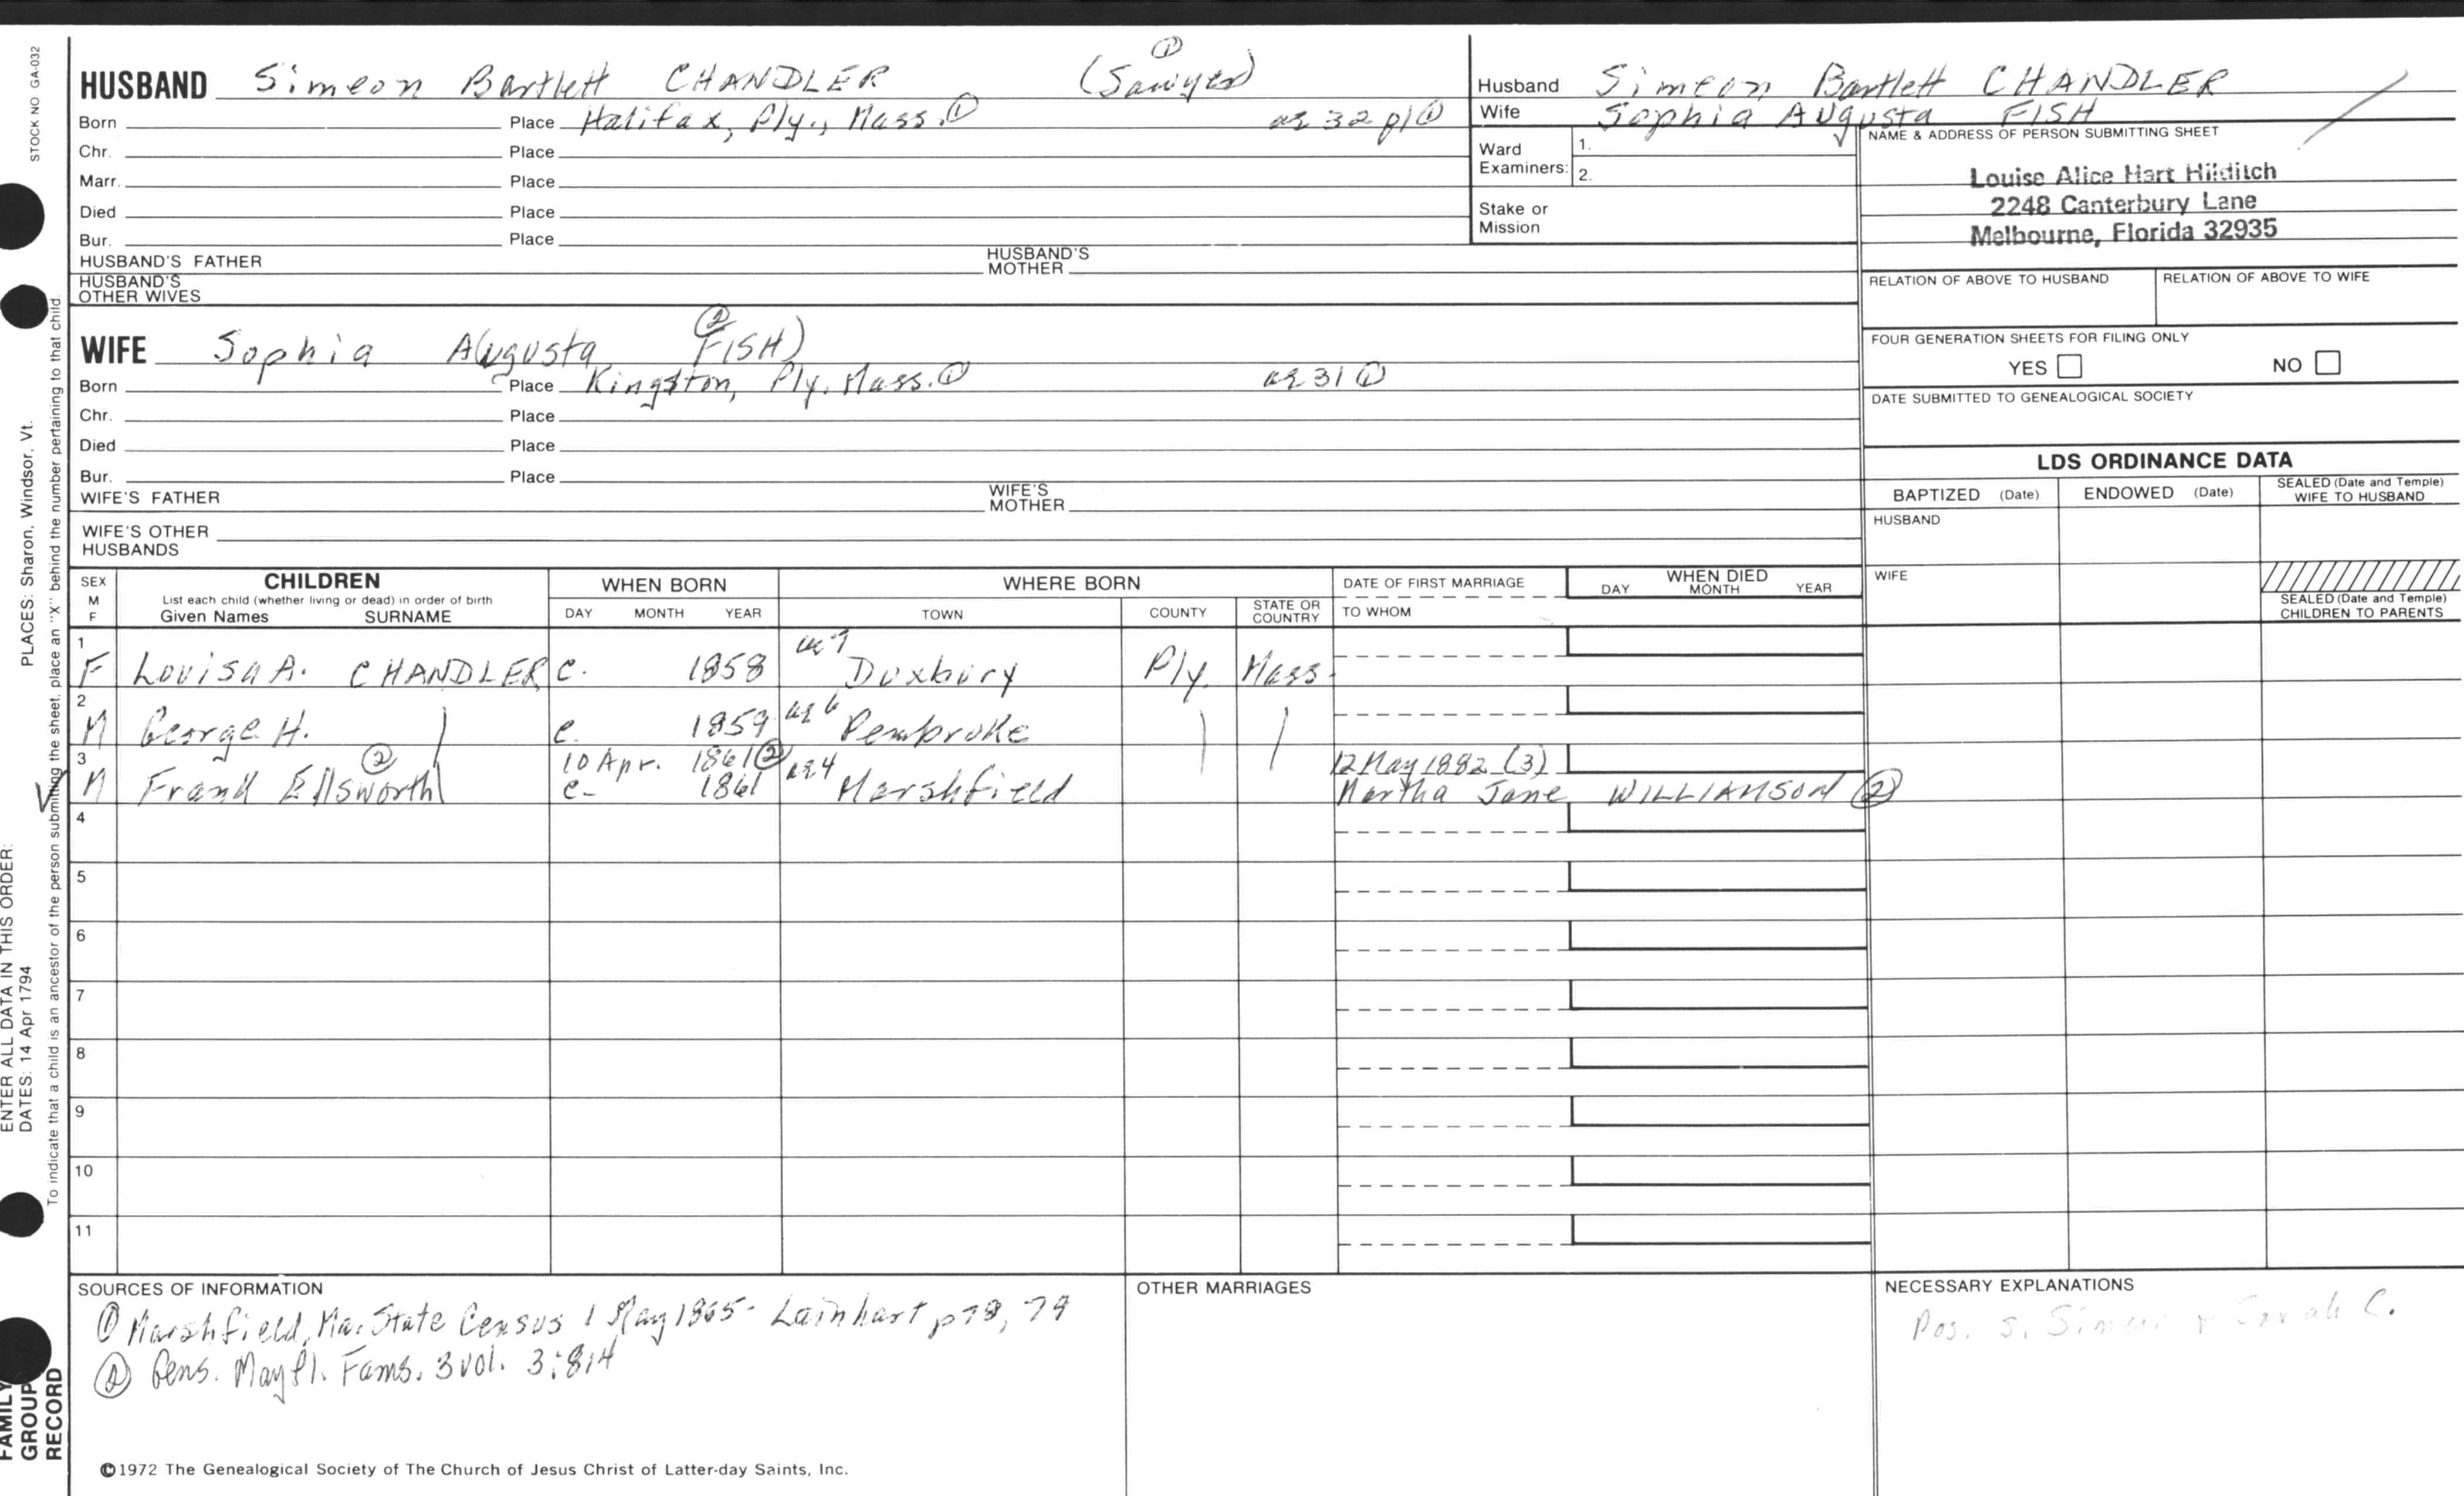 STOCK NO GA-032
PLACES: Sharon, Windsor, Vt.
ENTER ALL DATA IN THIS ORDER:
DATES: 14 Apr 1794
To indicate that a child is an ancestor of the person submitting the sheet, place an "X" behind the number pertaining to that child.
FAMILY GROUP RECORD
①
HUSBAND Simeon Bartlett CHANDLER (Sawyer)
Born Place Halifax, Ply., Mass. ① ag 32 p1 ①
Chr. Place
Marr. Place
Died Place
Bur. Place
HUSBAND'S FATHER HUSBAND'S MOTHER
HUSBAND'S OTHER WIVES
②
WIFE Sophia Augusta FISH)
Born Place Kingston, Ply. Mass. ① ag 31 ①
Chr. Place
Died Place
Bur. Place
WIFE'S FATHER WIFE'S MOTHER
WIFE'S OTHER HUSBANDS
Husband Simeon Bartlett CHANDLER
Wife Sophia Augusta FISH
Ward Examiners: 1.
2.
Stake or Mission
NAME & ADDRESS OF PERSON SUBMITTING SHEET
Louise Alice Hart Hilditch
2248 Canterbury Lane
Melbourne, Florida 32935
RELATION OF ABOVE TO HUSBAND RELATION OF ABOVE TO WIFE
FOUR GENERATION SHEETS FOR FILING ONLY
YES NO
DATE SUBMITTED TO GENEALOGICAL SOCIETY
LDS ORDINANCE DATA
BAPTIZED (Date) ENDOWED (Date) SEALED (Date and Temple) WIFE TO HUSBAND
HUSBAND
WIFE
SEALED (Date and Temple) CHILDREN TO PARENTS
SEX M F
CHILDREN
List each child (whether living or dead) in order of birth
Given Names SURNAME
WHEN BORN
DAY MONTH YEAR
WHERE BORN
TOWN COUNTY STATE OR COUNTRY
DATE OF FIRST MARRIAGE
TO WHOM
WHEN DIED
DAY MONTH YEAR
1 F Louisa A. CHANDLER c. 1858 ag 7 Duxbury Ply. Mass.
2 M George H. c. 1859 ag 6 Pembroke
3 ② 10 Apr. 1861 ② ag 4 12 May 1882 (3)
M Frank Ellsworth c- 1861 Marshfield Martha Jane WILLIAMSON ②
4
5
6
7
8
9
10
11
SOURCES OF INFORMATION
① Marshfield, Ma. State Census 1 May 1865- Lainhart p 78, 79
② Gens. Mayfl. Fams. 3 vol. 3:814
OTHER MARRIAGES
NECESSARY EXPLANATIONS
Pos. s. Simeon & Sarah C.
©1972 The Genealogical Society of The Church of Jesus Christ of Latter-day Saints, Inc.